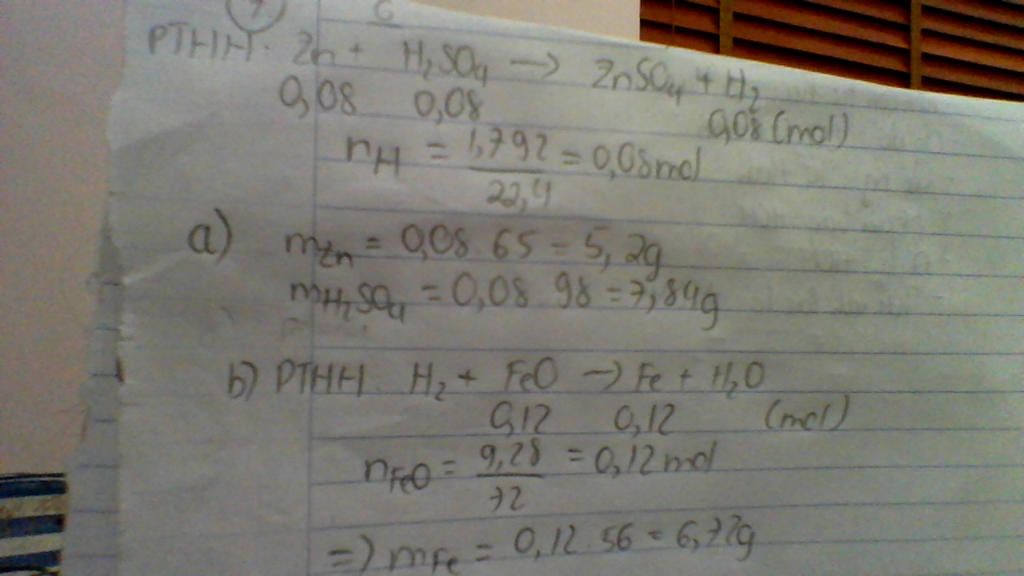 PTHH. Zn + H₂SO₄ → ZnSO₄ + H₂
0,08 0,08 0,08 (mol)
nH = 1,792/22,4 = 0,08 mol
a) mZn = 0,08 65 = 5,2g
mH₂SO₄ = 0,08 98 = 7,84g
b) PTHH H₂ + FeO → Fe + H₂O
0,12 0,12 (mol)
nFeO = 9,28/72 = 0,12 mol
=) mFe = 0,12 . 56 = 6,72g